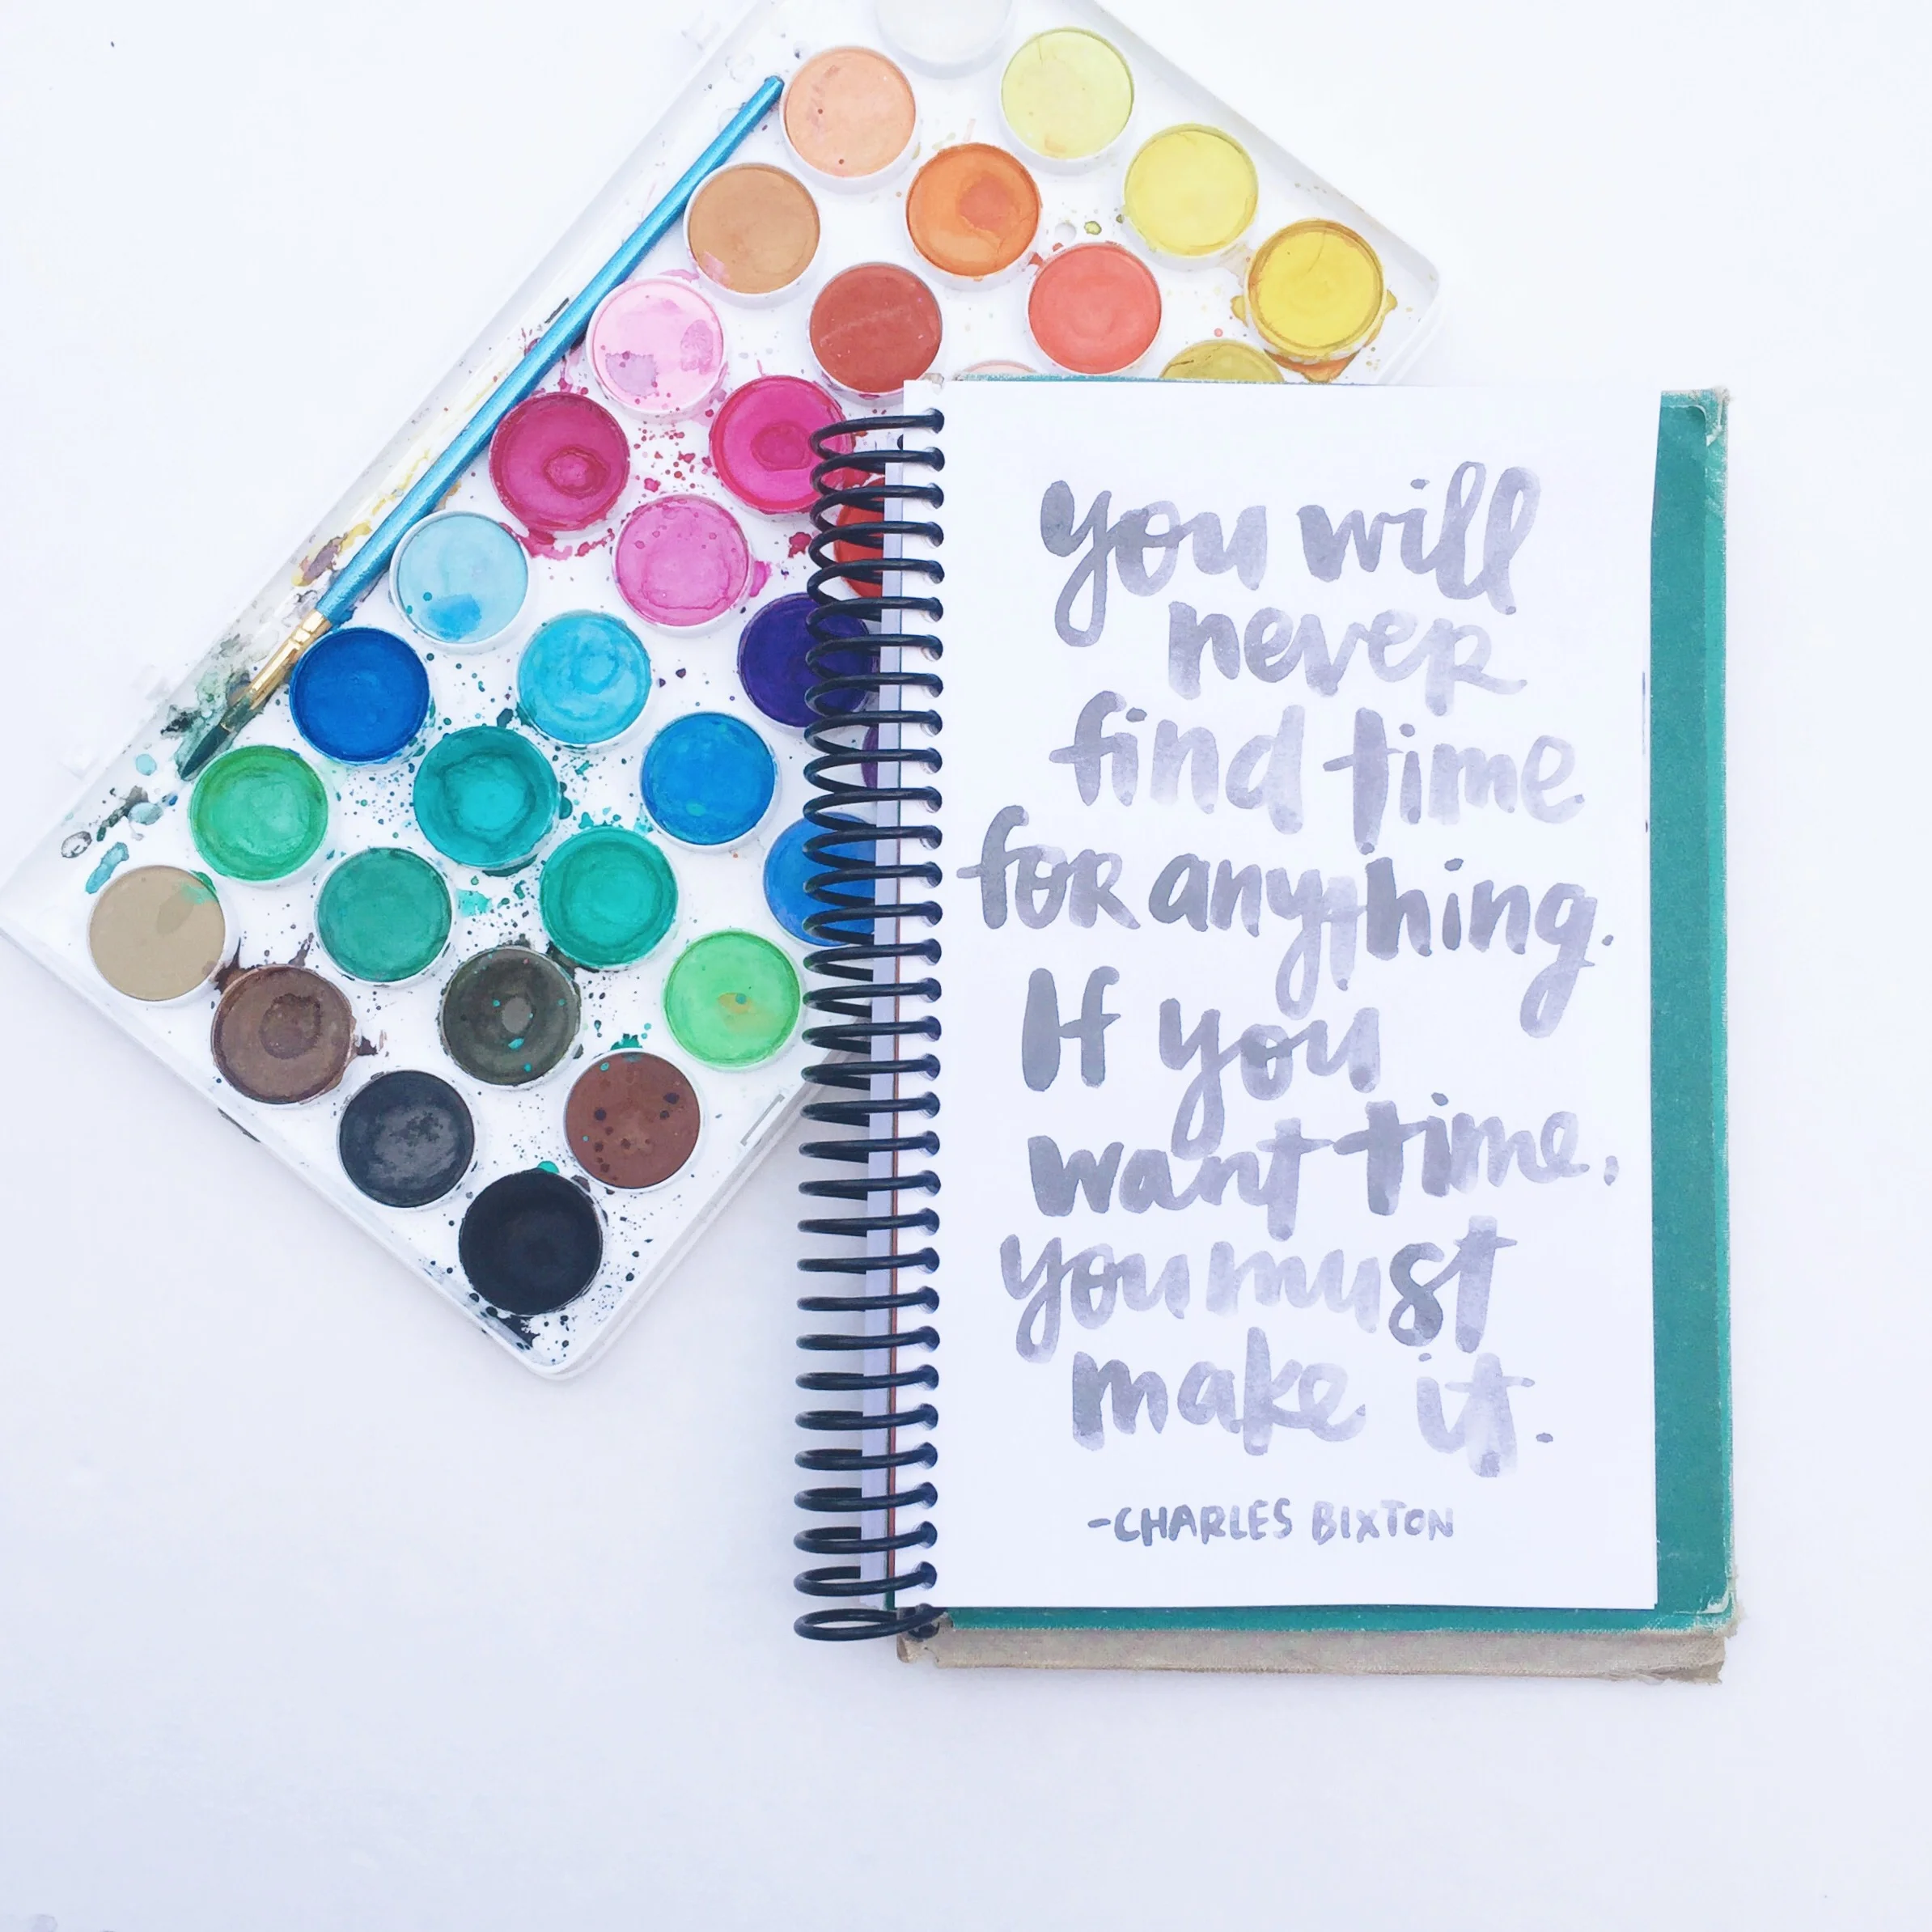 you will
never
find time
for anything.
If you
want time,
you must
make it.
-CHARLES BIXTON